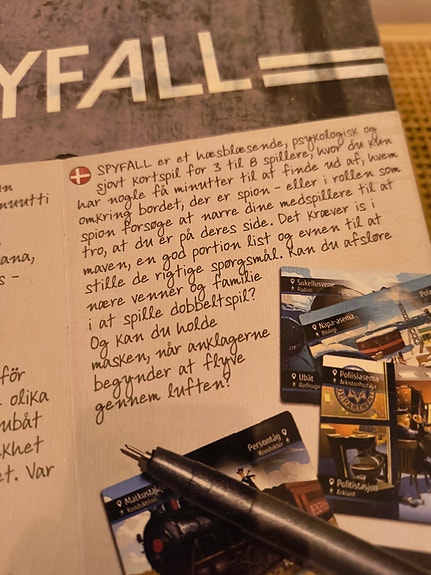 YFALL
SPYFALL er et hæsblæsende, psykologisk og
sjovt kortspil for 3 til 8 spillere, hvor du kun
har nogle få minutter til at finde ud af, hvem
omkring bordet, der er spion - eller i rollen som
spion forsøge at narre dine medspillere til at
tro, at du er på deres side. Det kræver is i
maven, en god portion list og evnen til at
stille de rigtige spørgsmål. Kan du afsløre
nære venner og familie
i at spille dobbeltspil?
Og kan du holde
masken, når anklagerne
begynder at flyve
gennem luften?
för
olika
ubåt
khet
et. Var
Sukellusvene
Radisti
Napa-asema
Biologi
Ubåt
Poliisiasema
Arkistonhoitaja
Politistasjon
Arkivar
Persontåg
Konduktör